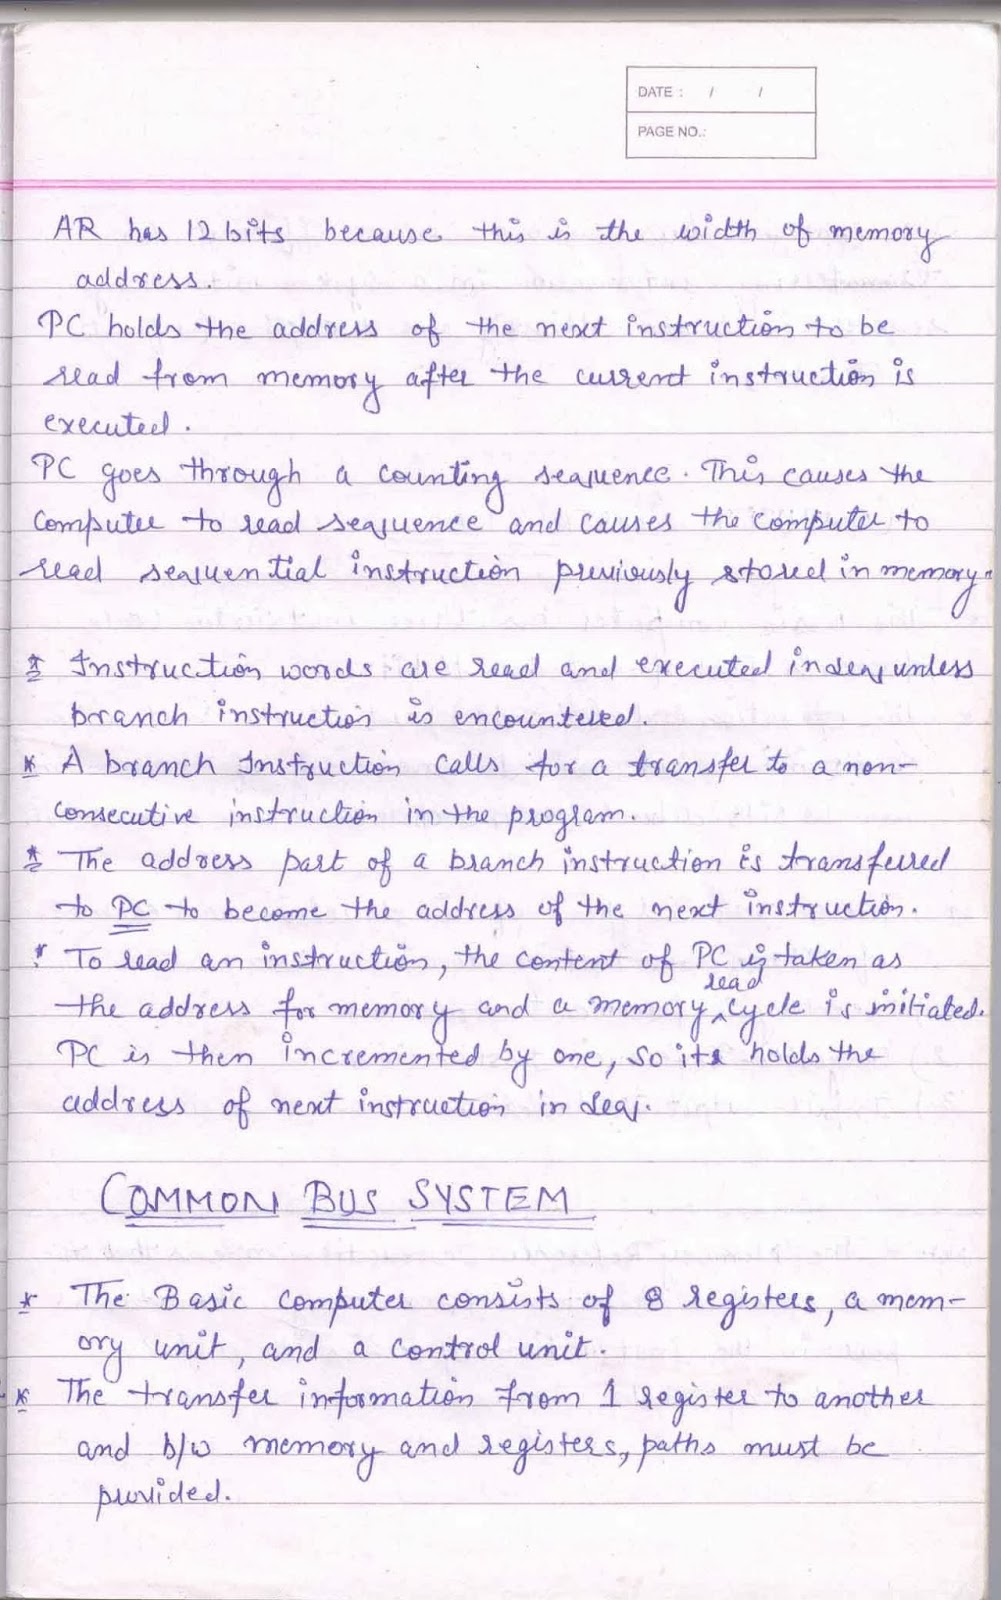 DATE : / /
PAGE NO.:
AR has 12 bits because this is the width of memory
address.
PC holds the address of the next instruction to be
read from memory after the current instruction is
executed.
PC goes through a counting sequence. This causes the
computer to read sequence and causes the computer to
read sequential instruction previously stored in memory.
* Instruction words are read and executed in seq unless
branch instruction is encountered.
* A branch Instruction calls for a transfer to a non-
consecutive instruction in the program.
* The address part of a branch instruction is transferred
to PC to become the address of the next instruction.
* To read an instruction, the content of PC is taken as
the address for memory and a memory read cycle is initiated.
PC is then incremented by one, so its holds the
address of next instruction in seq.
COMMON BUS SYSTEM
* The Basic computer consists of 8 registers, a mem-
ory unit, and a control unit.
* The transfer information from 1 register to another
and b/w memory and registers, paths must be
provided.